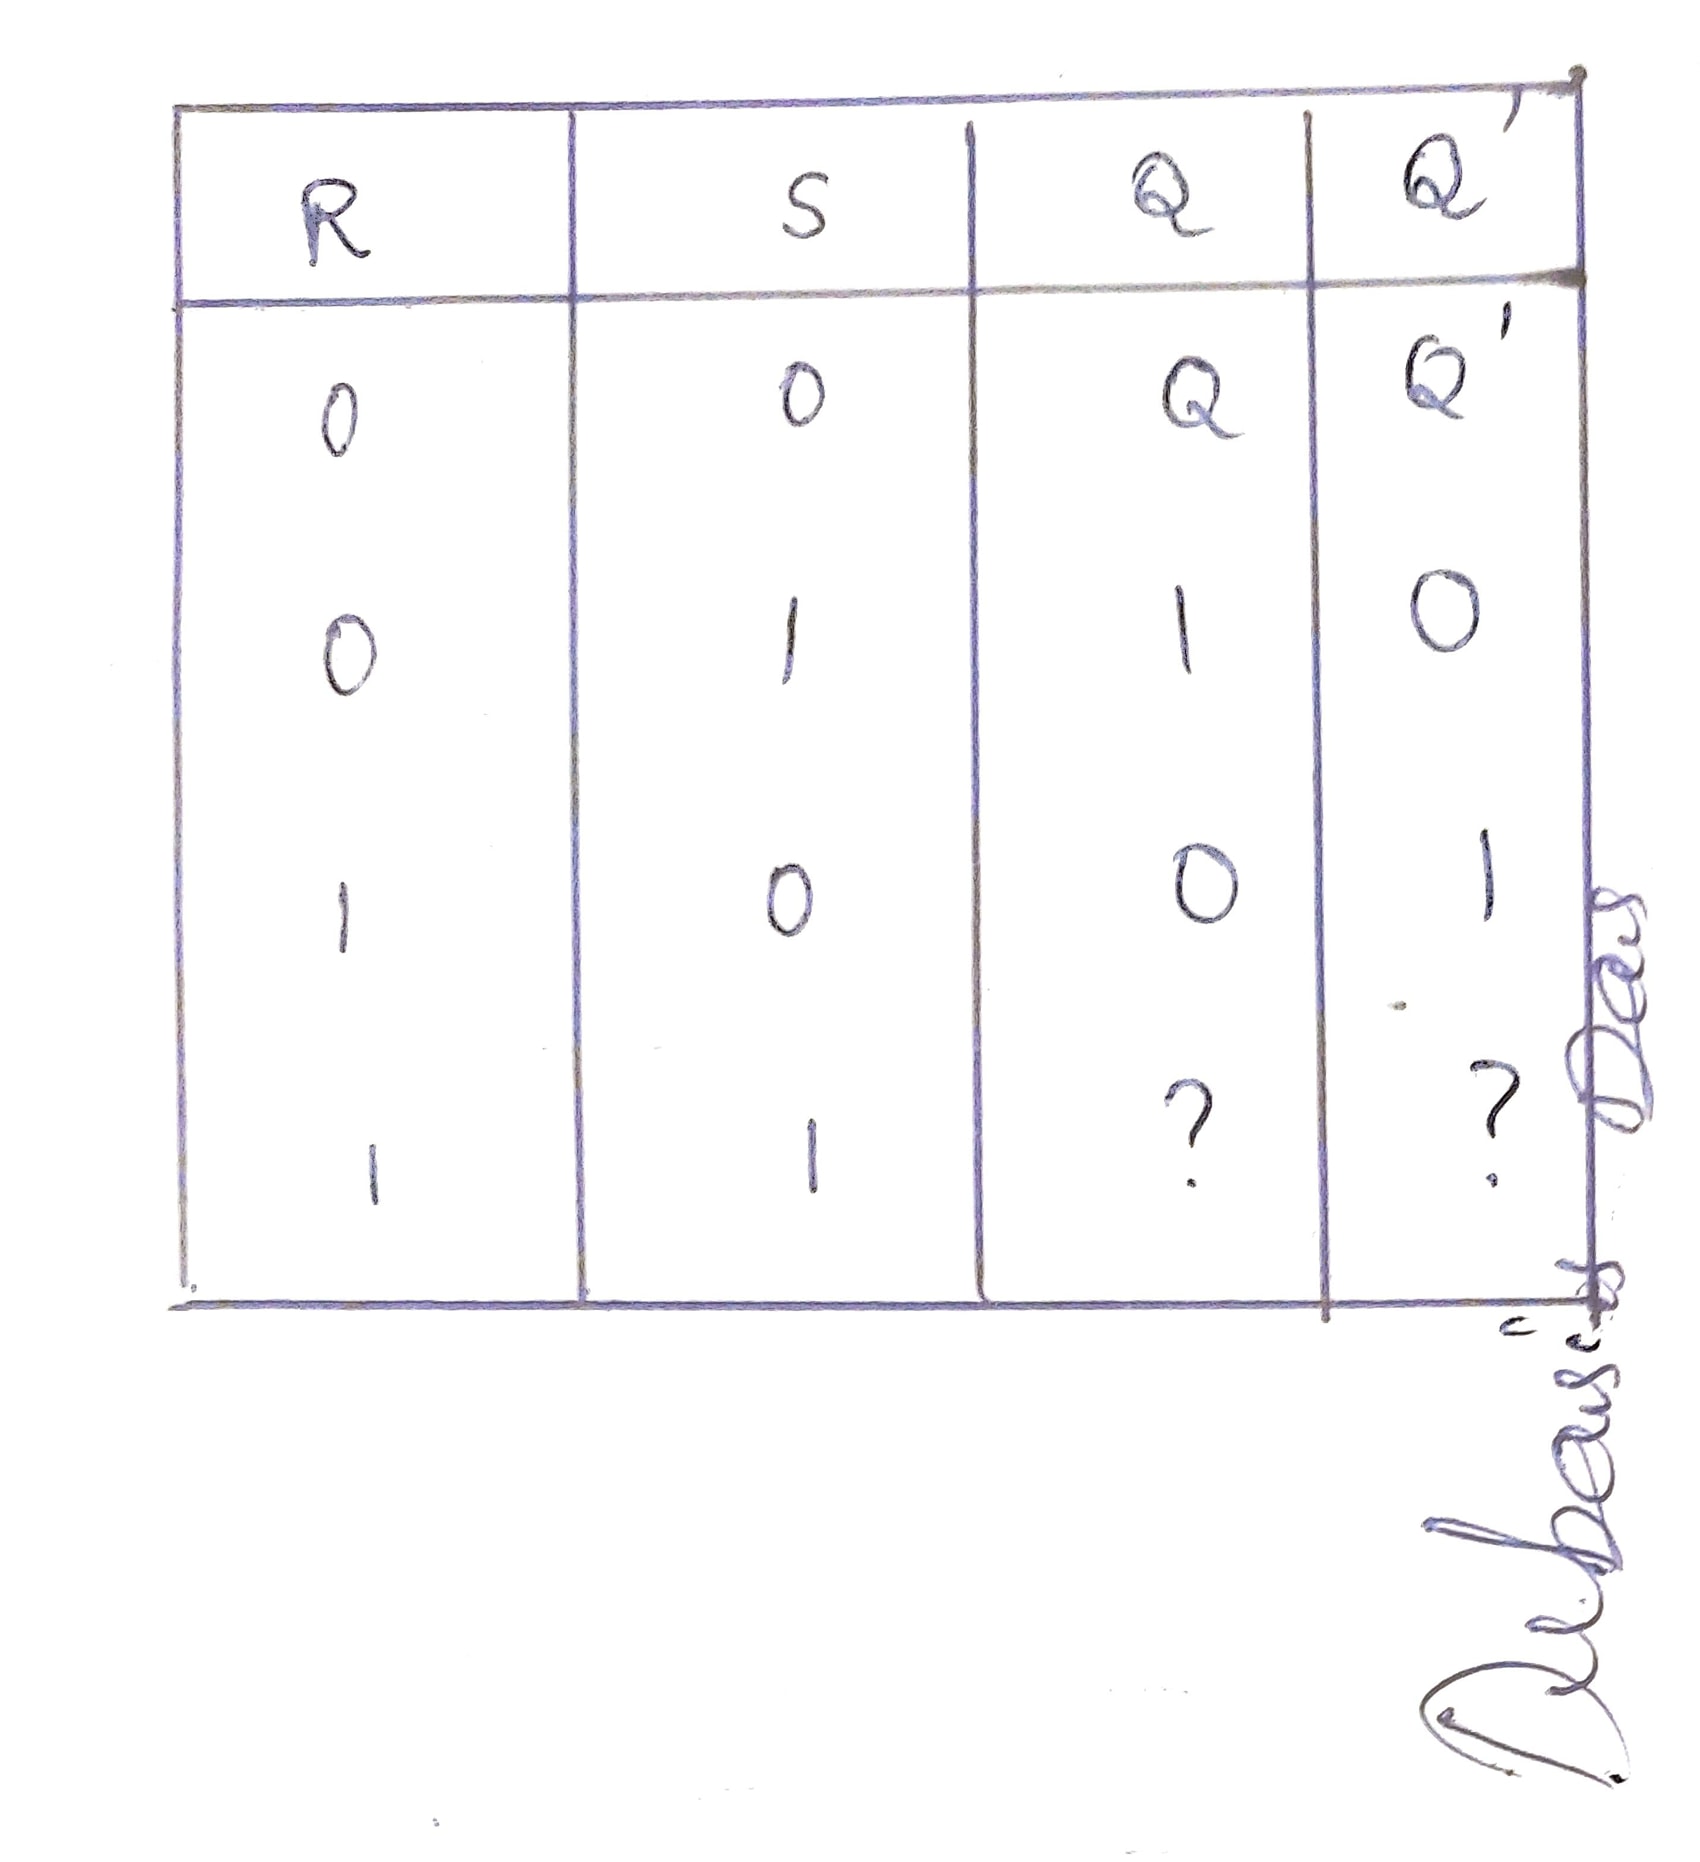 R S Q Q'
0 0 Q Q'
0 1 1 0
1 0 0 1
1 1 ? ?
Debasish Das